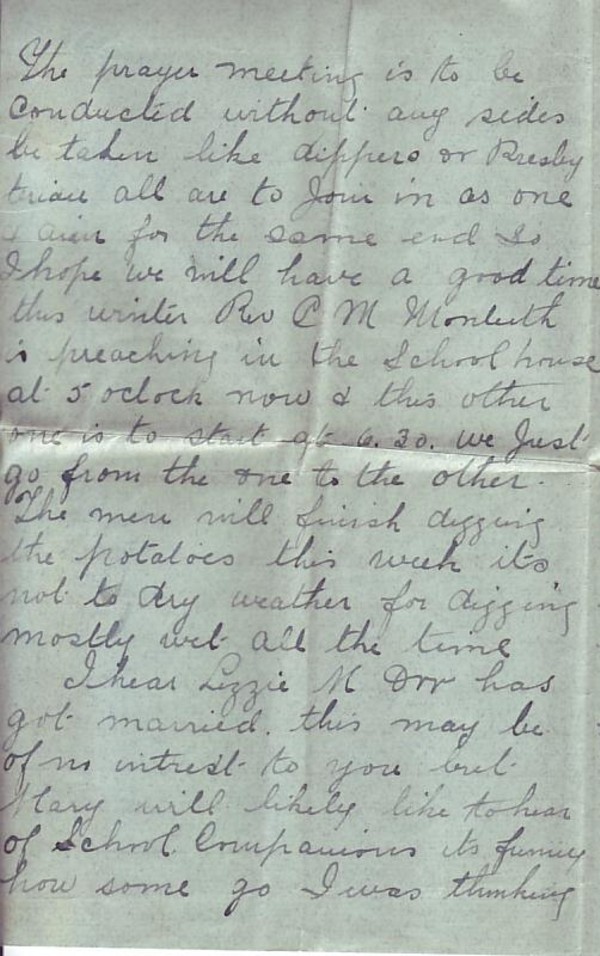 The prayer meeting is to be
conducted without any sides
be taken like dippers or Presby
terian all are to Join in as one
& aim for the same end So
I hope we will have a good time
this winter Rev C M Monteith
is preaching in the School house
at 5 oclock now & this other
one is to start at 6.30. we Just
go from the one to the other.
The men will finish digging
the potatoes this week its
not to dry weather for digging
mostly wet all the time
I hear Lizzie M Orr has
got married. this may be
of no intrest to you but
Mary will likely like to hear
of School Companions its funny
how some go I was thinking